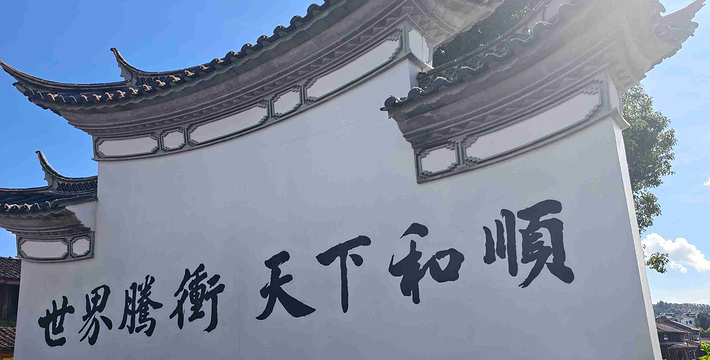 世界騰衝 天下和順